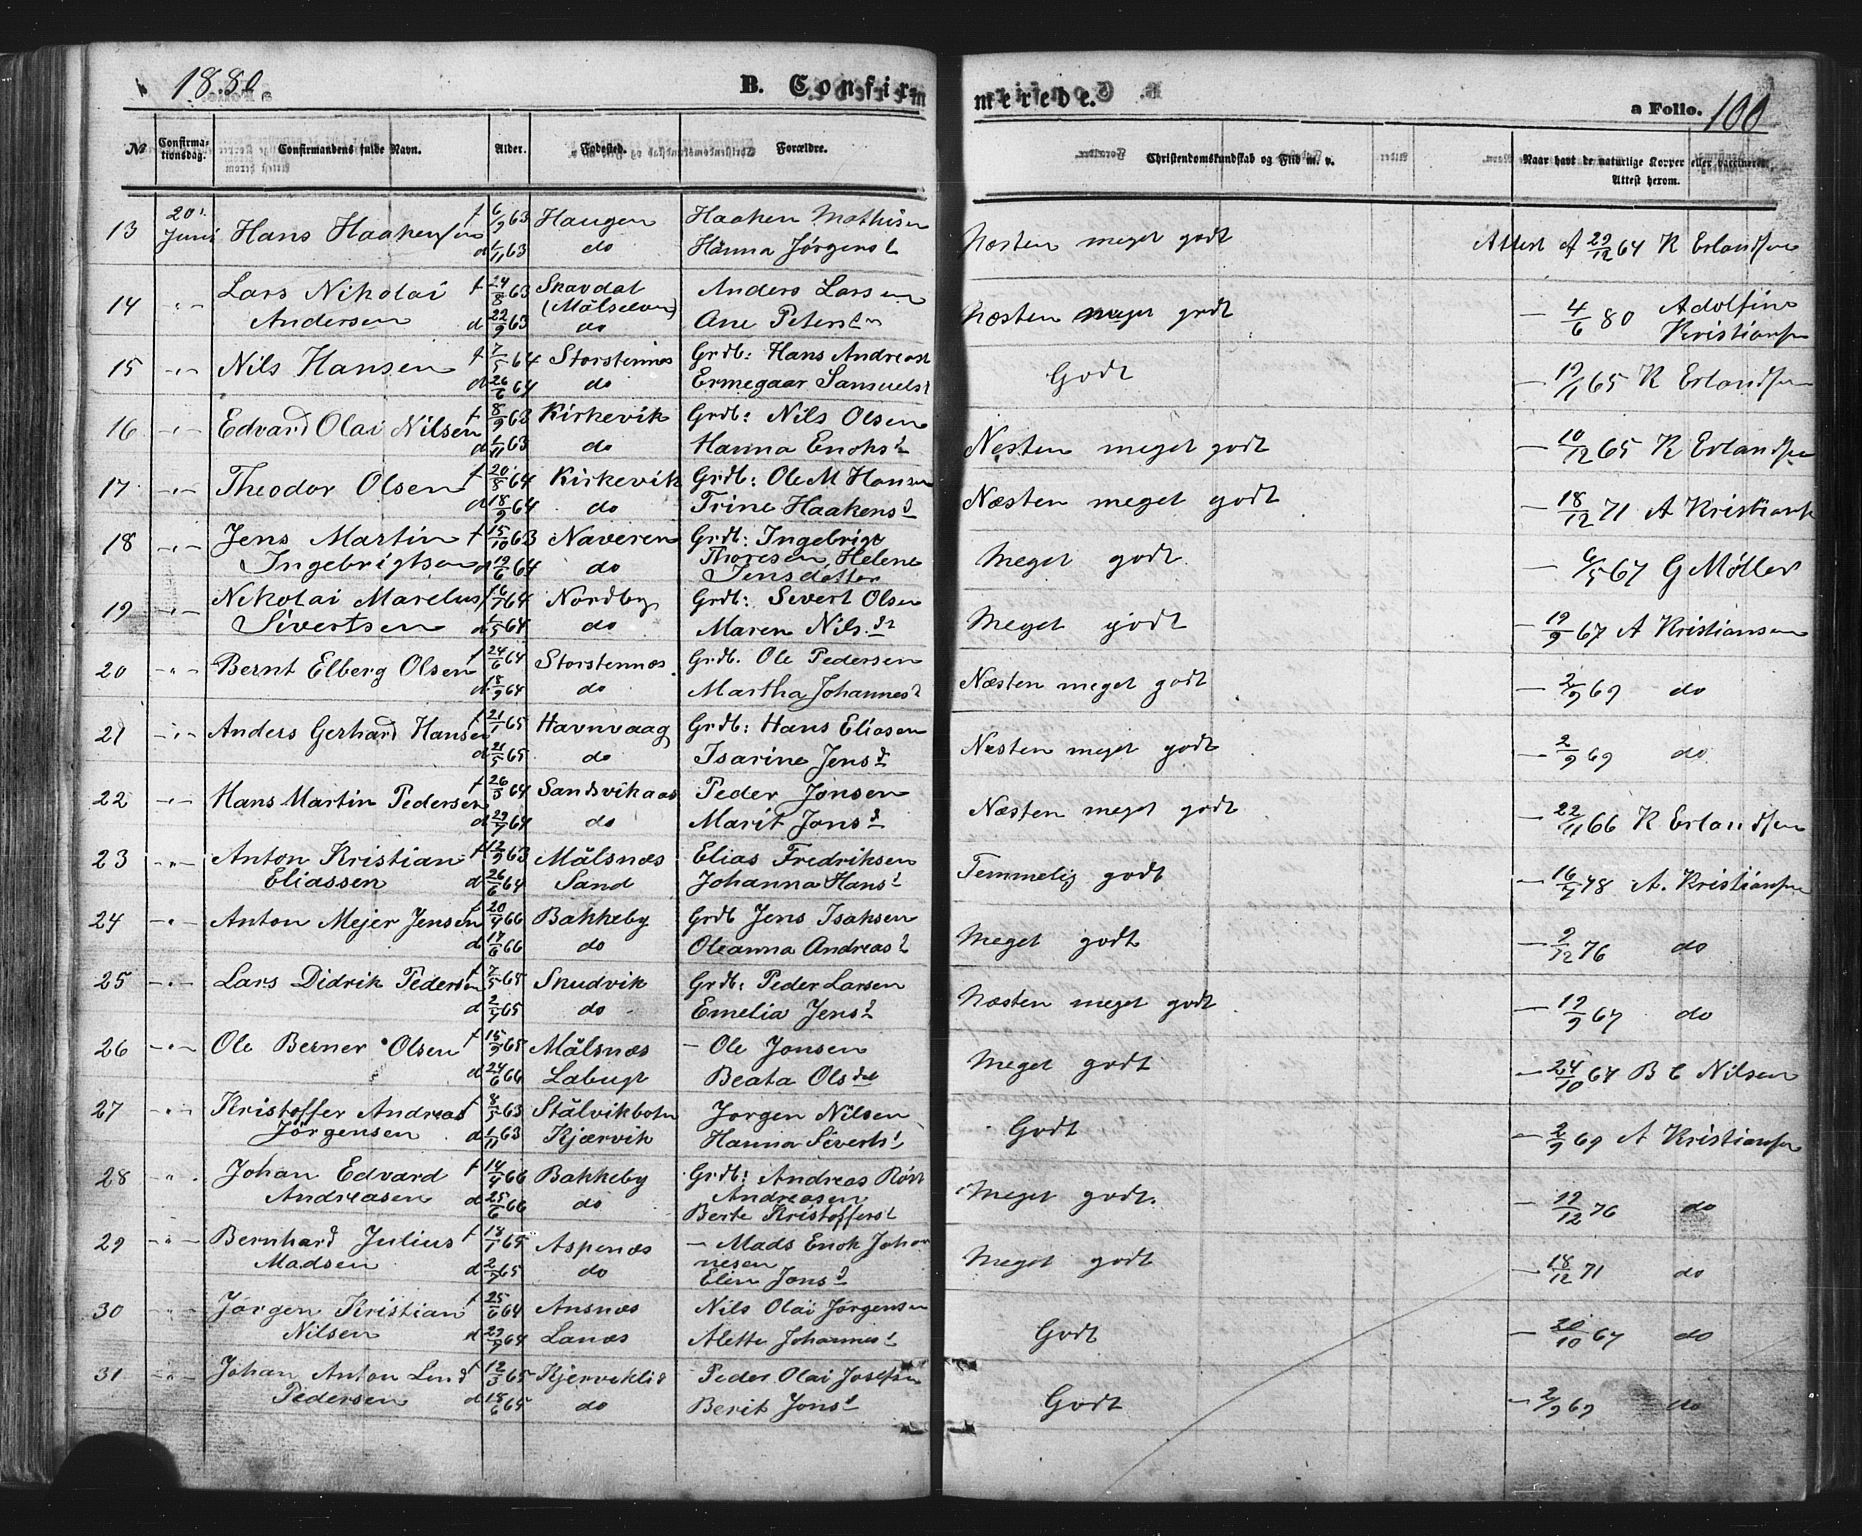 1880
B. Confirmerede.
a Folio. 100
No Confirmationsdag. Confirmandens fulde Navn. Alder. Fødested. Forældre. Christendomskundskab og Flid m. v. Naar havt de naturlige Kopper eller vaccineret. Attest herom.
13 20. Juni Hans Haakensen f 6/9 63 Haugen Haaken Mathisen Næsten meget godt Attest A 29/12 64 K Erlandsen
d 1/11 63 do Hanna Jørgensd
14 Lars Nikolai f 24/8 63 Skavdal Anders Larsen Næsten meget godt 4/6 80 Adolfine
Andersen d 22/9 63 (Målselven) do Ane Petersd Kristiansen
15 Nils Hansen f 7/5 64 Storstennes Grdb: Hans Andreas Godt 19/1 65 K Erlandsen
d 26/6 64 do Ermegaar Samuelsd
16 Edvard Olai Nilsen f 8/9 63 Kirkevik Grdb: Nils Olsen Næsten meget godt 10/12 65 K Erlandsen
d 1/11 63 do Hanna Enoksd
17 Theodor Olsen f 20/5 64 Kirkevik Grdb: Ole M Hansen Næsten meget godt 18/12 71 A Kristians
d 18/9 64 do Trine Haakensd
18 Jens Martin f 15/10 63 Naveren Grdb: Ingebrigt Meget godt 6/5 67 G Møller
Ingebrigtsen d 19/6 64 do Thoresen, Helene
Jensdatter
19 Nikolai Marelus f 64 Nordby Grdb: Sivert Olsen Meget godt 19/9 67 A Kristiansen
Sivertsen d 1/5 64 do Maren Nilsd
20 Bernt Elberg Olsen f 24/6 64 Storstennæs Grdb. Ole Pedersen Næsten meget godt 2/9 69 do
d 18/9 64 do Martha Johannesd
21 Anders Gerhard Hansen f 21/1 65 Havnvaag Grdb: Hans Eliasen Næsten meget godt 2/9 69 do
d 21/5 65 do Isarine Jensd
22 Hans Martin Pedersen f 26/5 64 Sandsvikaas Peder Jonsen Næsten meget godt 22/11 66 K Erlandsen
d 29/7 64 do Marit Jonsd
23 Anton Kristian f 12/9 63 Målsnæs Elias Fredriksen Temmelig godt 16/7 78 A. Kristiansen
Eliassen d 26/6 64 Sand Johanna Hansd
24 Anton Mejer Jensen f 20/4 66 Bakkeby Grdb Jens Isaksen Meget godt 2/12 76 do
d 17/6 66 do Oleanna Andreasd
25 Lars Didrik Pedersen f 7/5 65 Skudvik Grdb: Peder Larsen Næsten meget godt 19/9 67 do
d 2/7 65 do Emelia Jensd
26 Ole Berner Olsen f 15/9 65 Målsnæs - Ole Jonsen Meget godt 24/10 67 B C Nilsen
d 24/6 66 Labugt Beata Olsdat
27 Kristoffer Andreas f 8/5 63 Stålvikbotn Jørgen Nilsen Godt 2/9 69 A Kristiansen
Jørgensen d 1/11 63 Kjærvik Hanna Sivertsd
28 Johan Edvard f 14/4 66 Bakkeby Grdb: Andreas Røst Meget godt. 19/12 76 do
Andreasen d 25/6 66 do Andreasen
Berte Kristoffersd
29 Bernhard Julius f 18/1 65 Aspenæs - Mads Enok Johan Meget godt 18/12 71 do
Madsen d 2/7 65 do nesen
Elen Jonsd
30 Jørgen Kristian f 25/6 64 Ansnæs Nils Olai Jørgensen Godt 20/10 67 do
Nilsen d 29/9 64 Lanæs Alette Johannesd
31 Johan Anton Lind f 12/3 65 Kjerveklid Peder Olai Josefsen Godt 2/9 69 do
Pedersen d 18/6 65 do Berit Jonsd